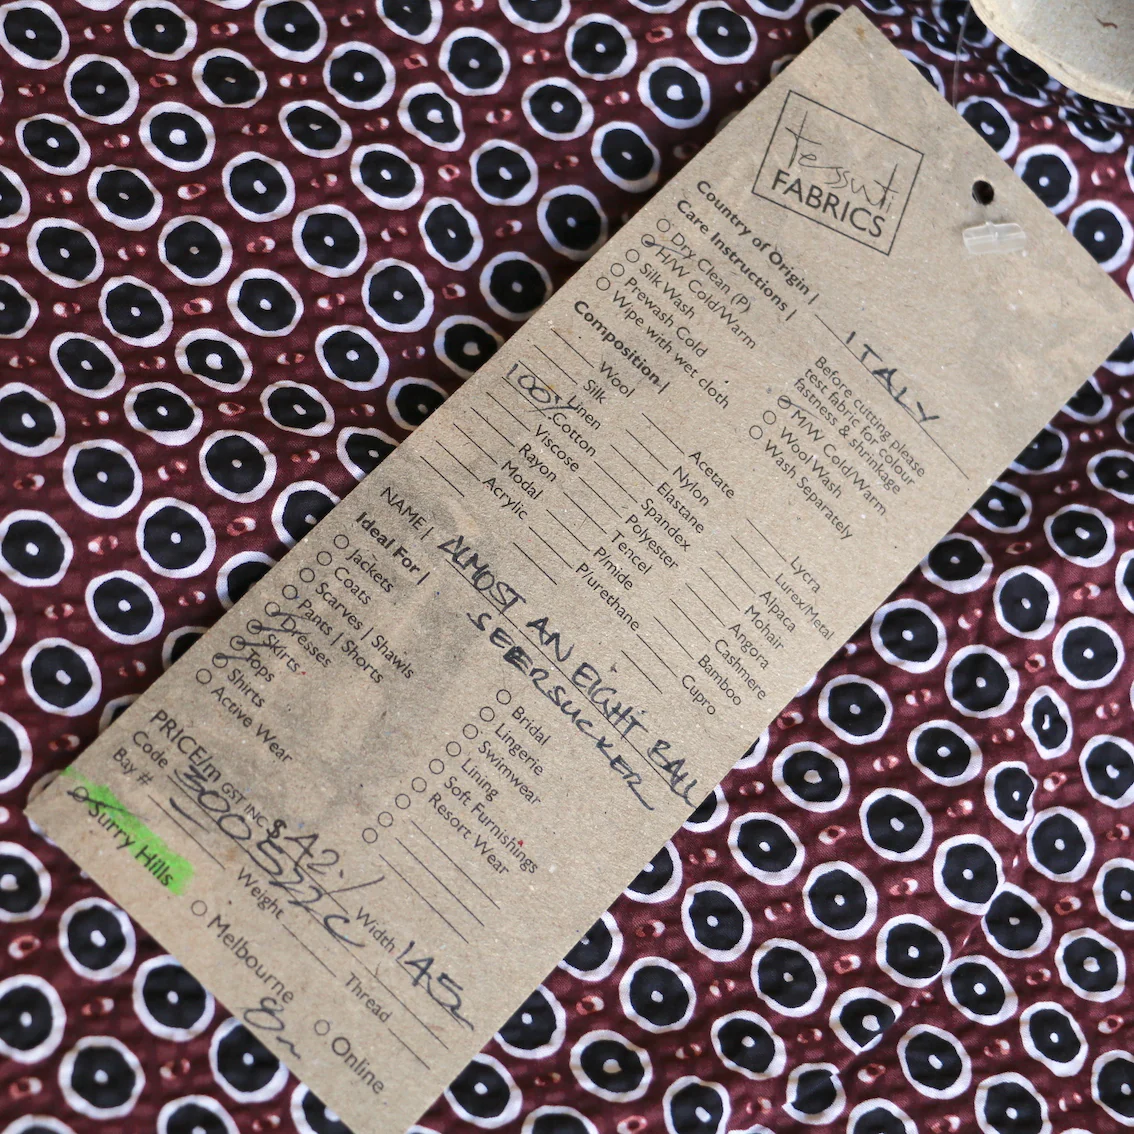 tessuti
FABRICS
Country of Origin | ITALY
Care Instructions |
Dry Clean (P)
H/W Cold/Warm
Silk Wash
Prewash Cold
Wipe with wet cloth
Before cutting please
test fabric for colour
fastness & shrinkage
M/W Cold/Warm
Wool Wash
Wash Separately
Composition |
Wool
Silk
Linen
100% Cotton
Viscose
Rayon
Modal
Acrylic
Acetate
Nylon
Elastane
Spandex
Polyester
Tencel
P/mide
P/urethane
Lycra
Lurex/Metal
Alpaca
Mohair
Angora
Cashmere
Bamboo
Cupro
NAME | ALMOST AN EIGHT BALL
SEERSUCKER
Ideal For |
Jackets
Coats
Scarves | Shawls
Pants | Shorts
Dresses
Skirts
Tops
Shirts
Active Wear
Bridal
Lingerie
Swimwear
Lining
Soft Furnishings
Resort Wear
PRICE/m GST INC $42./
Code 300522C Width 145
Bay # Weight Thread
Surry Hills Melbourne Online